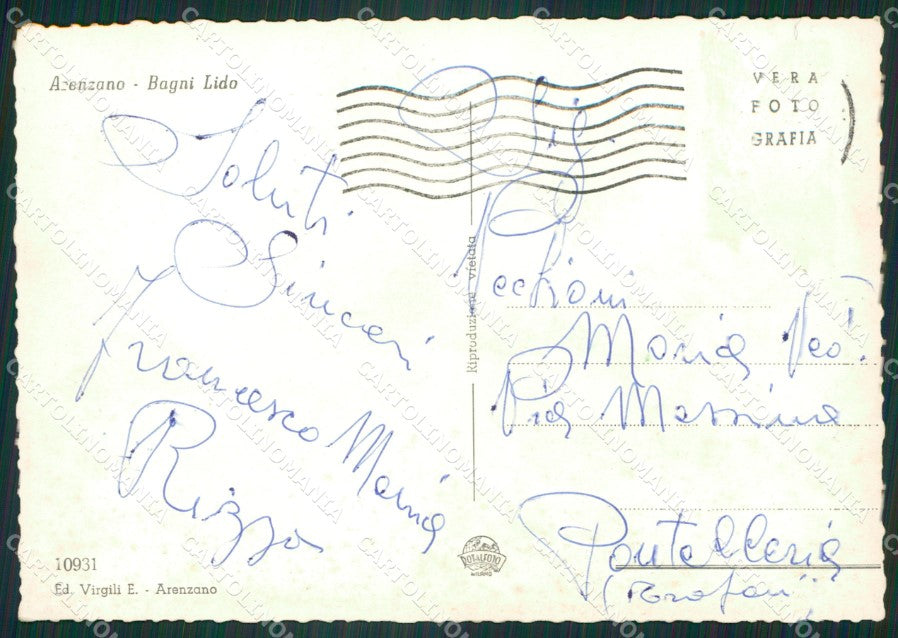 Arenzano - Bagni Lido
VERA
FOTO
GRAFIA
Saluti
Sinceri
Francesco Maria
Rizzo
Riproduzione vietata
Maria
Via Messina
Pantelleria
10931
Ed. Virgili E. - Arenzano
ROTALFOTO
MILANO
CARTOLINOMANIA